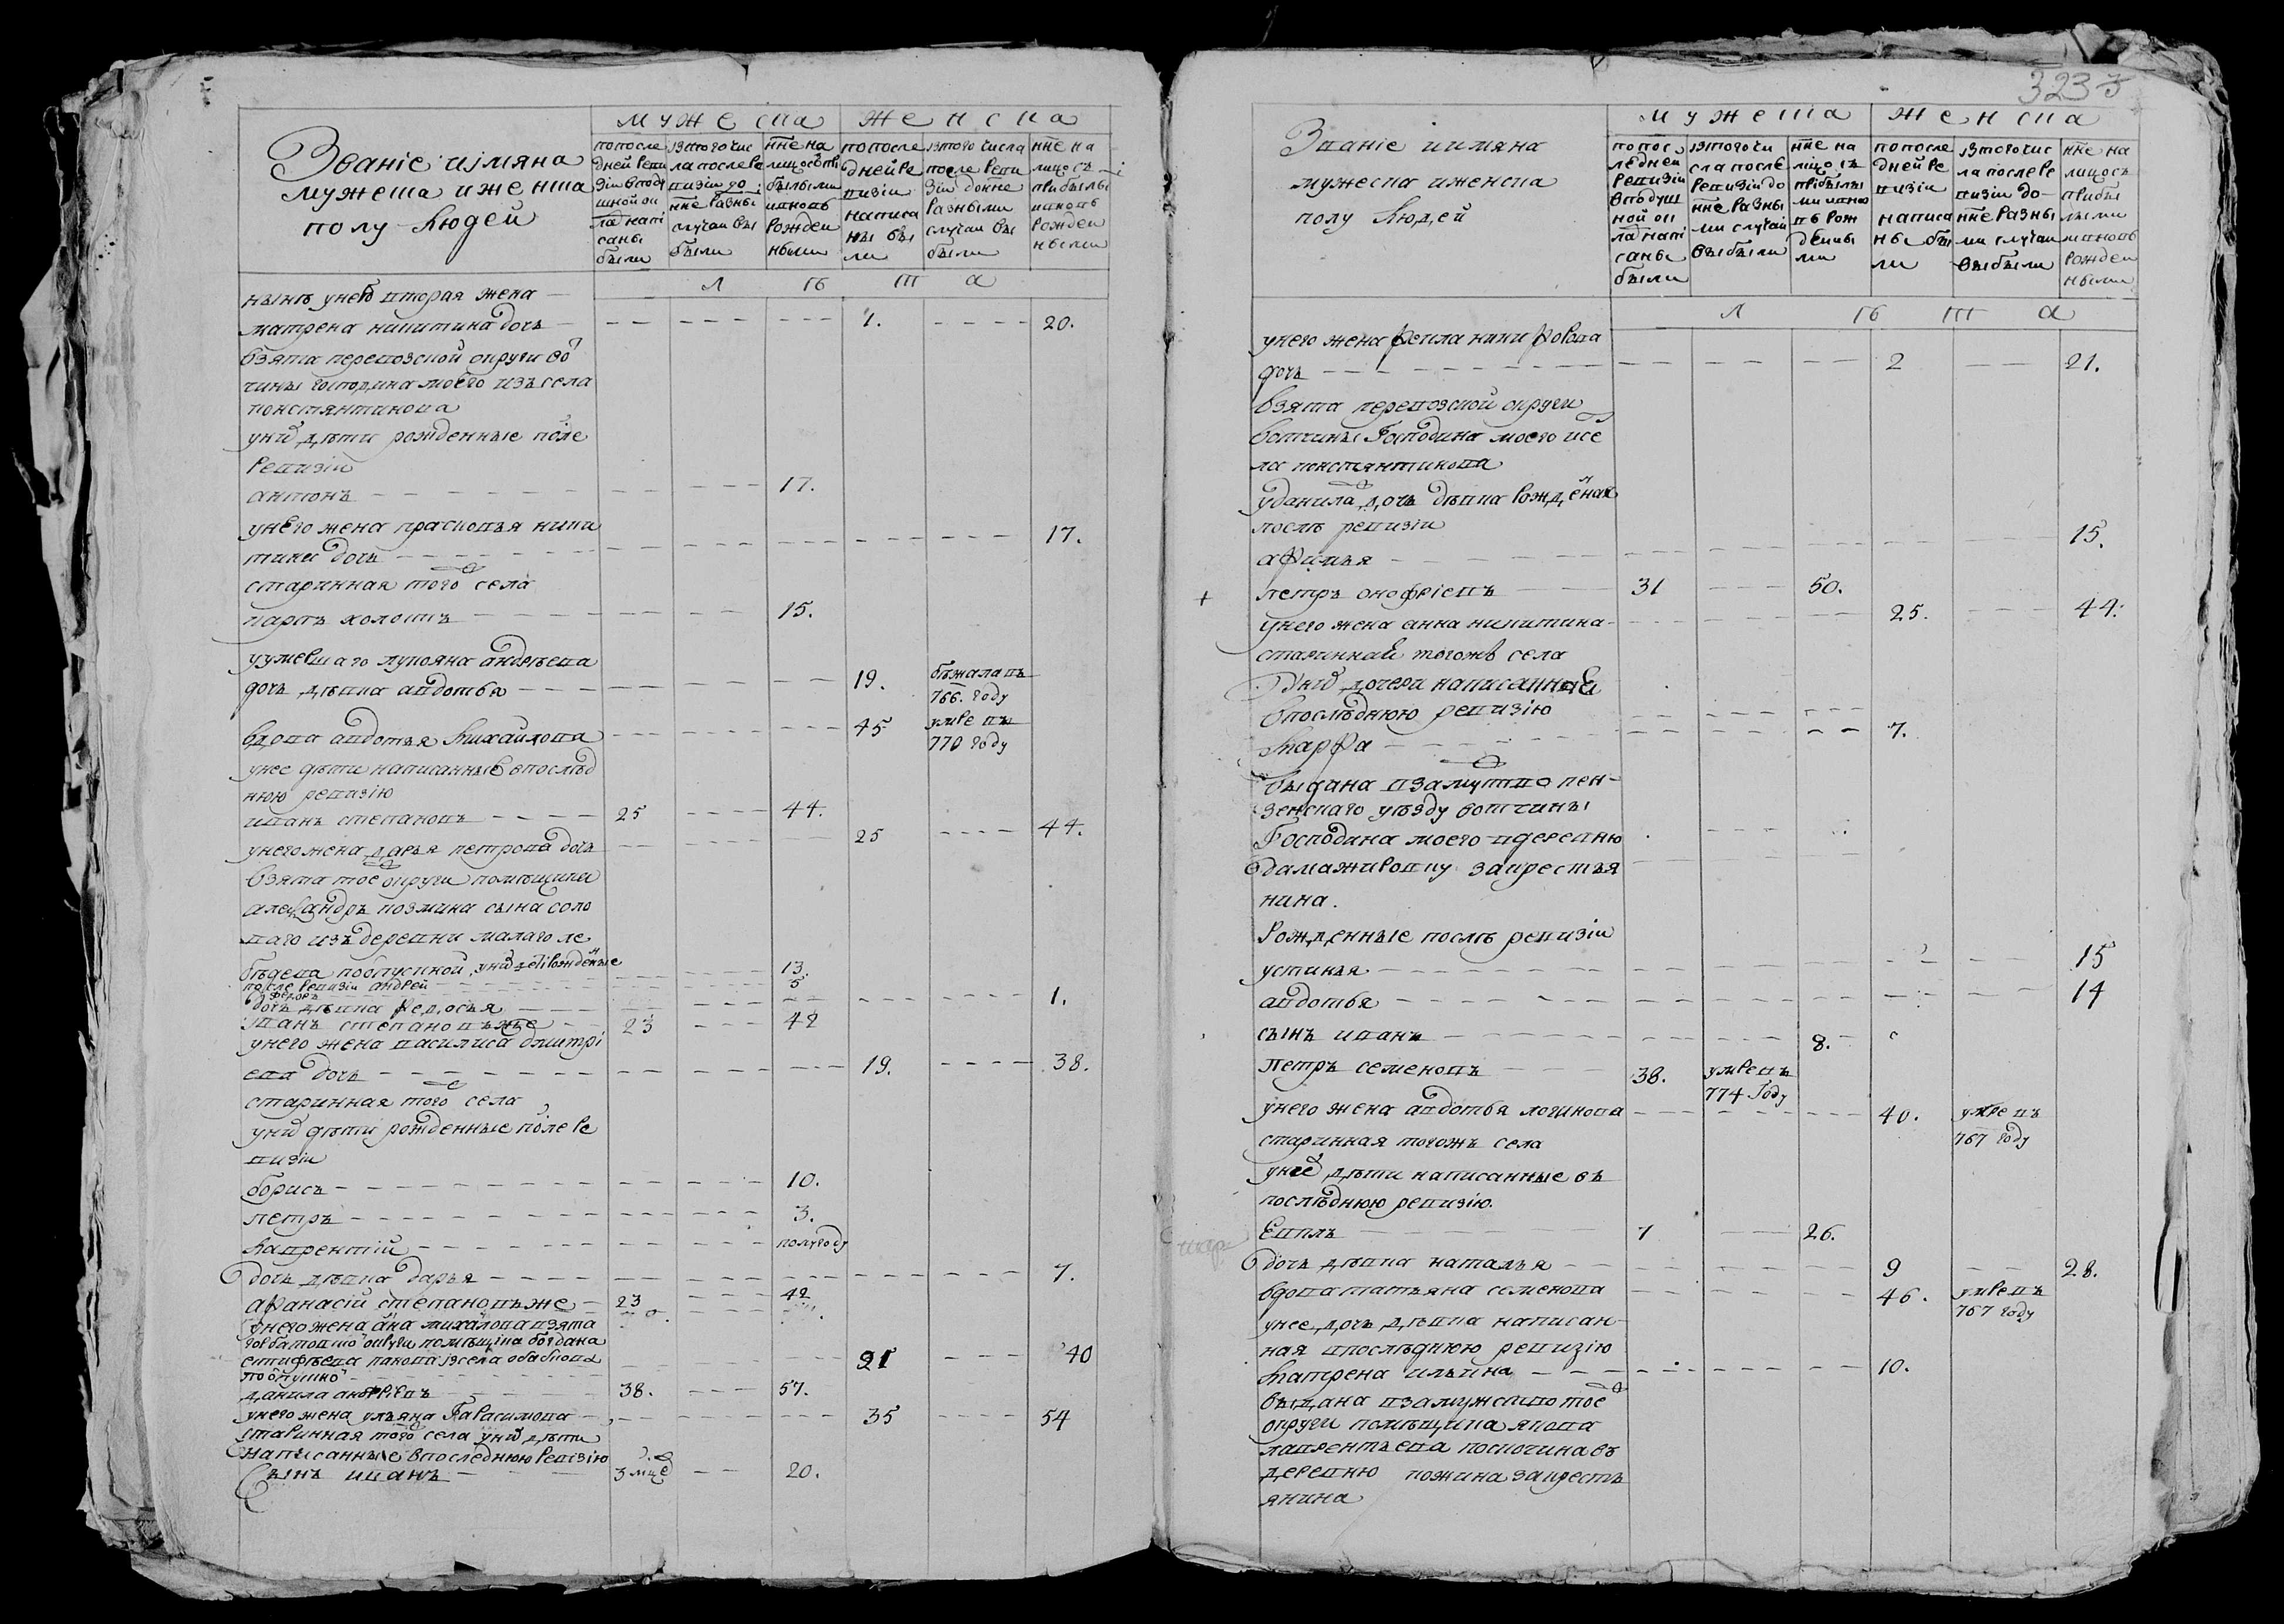 323
Званіе иімяна
мужеска иженска
полу людей
мужеска женска
попосле
дней реви
зіи вподу
шной ок
ладнапи
саны
были
изтого чис
ла после ре
визіи до
нне разны
случаи вы
были
нне на
лицо съ при
былыми
ивновь
рожден
ными
попосле
дней ре
визіи
написа
ны бы
ли
изтого числа
после реви
зіи донне
разными
случаи вы
были
нне на
лицо съ
прибылы
ивновь
рожден
ными
л ѣ т а
нынѣ унего вторая жена
матрена никитина дочь 1. 20.
взята перевозской округи во
тчины господина моего изъ села
константинова
уних дѣти рожденные после
ревизіи
антонъ 17.
унего жена прасковья ники
тина дочь 17.
старинная того села
карпъ холостъ 15.
уумершаго лукояна андрѣева
дочь дѣвка авдотья 19. бѣжала въ
766. году
вдова авдотья михайлова 45 умре въ
770 году
унее дѣти написанные впослѣд
нюю ревизію
иванъ степановъ 25 44.
унего жена дарья петрова дочь 25 44.
взята тое округи помѣщика
александръ козмина сына соло
ваго изъ деревни малаго ле
бѣдева поотпускной, уних дѣти рожденные
после ревизіи андрей 13.
федоръ 5
дочь дѣвка федосья 1.
иванъ степановъ же 23 42
унего жена василиса дмитрі
ева дочь 19. 38.
старинная того села
уних дѣти рожденные после ре
визіи
борисъ 10.
петръ 3.
лаврентій полугоду
дочь дѣвка дарья 7.
афанасій степановъ же 23 42
унего жена анна михайлова взята
горбатовской округи помѣщика богдана
села
поотпускной 21 40
данила анофріевъ 38. 57.
унего жена ульяна гарасимова 35 54
старинная того села уних дѣти
написанные впоследнюю ревизію
сынъ иванъ 3 мцъ 20.
Званіе иимяна
мужеска иженска
полу людей
мужеска женска
попос
лѣдней
ревизіи
вподуш
ной ок
ладнапи
саны
были
изтого чи
сла послѣ
ревизіи до
нне разны
ми случаи
выбыли
нне на
лицо съ
прибылы
ми ивно
въ рож
денны
ми
попосле
дней ре
визіи
написа
ны бы
ли
изтого чис
ла после ре
визіи до-
нне разны
ми случаи
выбыли
нне на
лицо съ
прибы
лыми
ивновь
рожден
ными
л ѣ т а
унего жена фекла никифорова
дочь 2 21.
взята перевозской округи
вотчины Господина моего исе
ла константинова
уданила дочь дѣвка рожденая
послѣ ревизіи
афимья 15.
петръ онофріевъ 31 50.
унего жена анна никитина 25. 44.
старинная тогожъ села
уних дочери написанные
впослѣднюю ревизію
марфа 7.
выдана взамужтво пен-
зенскаго уѣзду вотчины
Господина моего вдеревню
дамажировку закрестья
нина.
Рожденные послѣ ревизіи
устинья 15
авдотья 14
сынъ иванъ 8.
петръ семеновъ 38. умре въ
774 Году
унего жена авдотья логинова 40. умре въ
767 году
старинная тогожъ села
унее дѣти написанные въ
послѣднюю ревизію.
Евплъ 7 26.
дочь дѣвка наталья 9 28.
вдова татьяна семенова 46. умре въ
767 году
унее дочь дѣвка написан-
ная впослѣднюю ревизію
матрена ильина 10.
выдана взамужство тое
округи помѣщика якова
лаврентьева въ
деревню закресть
янина